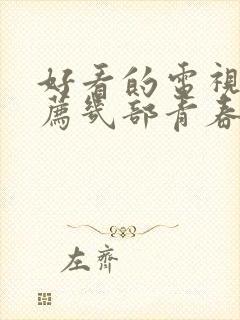 好看的電視
薦幾部青春
左齊